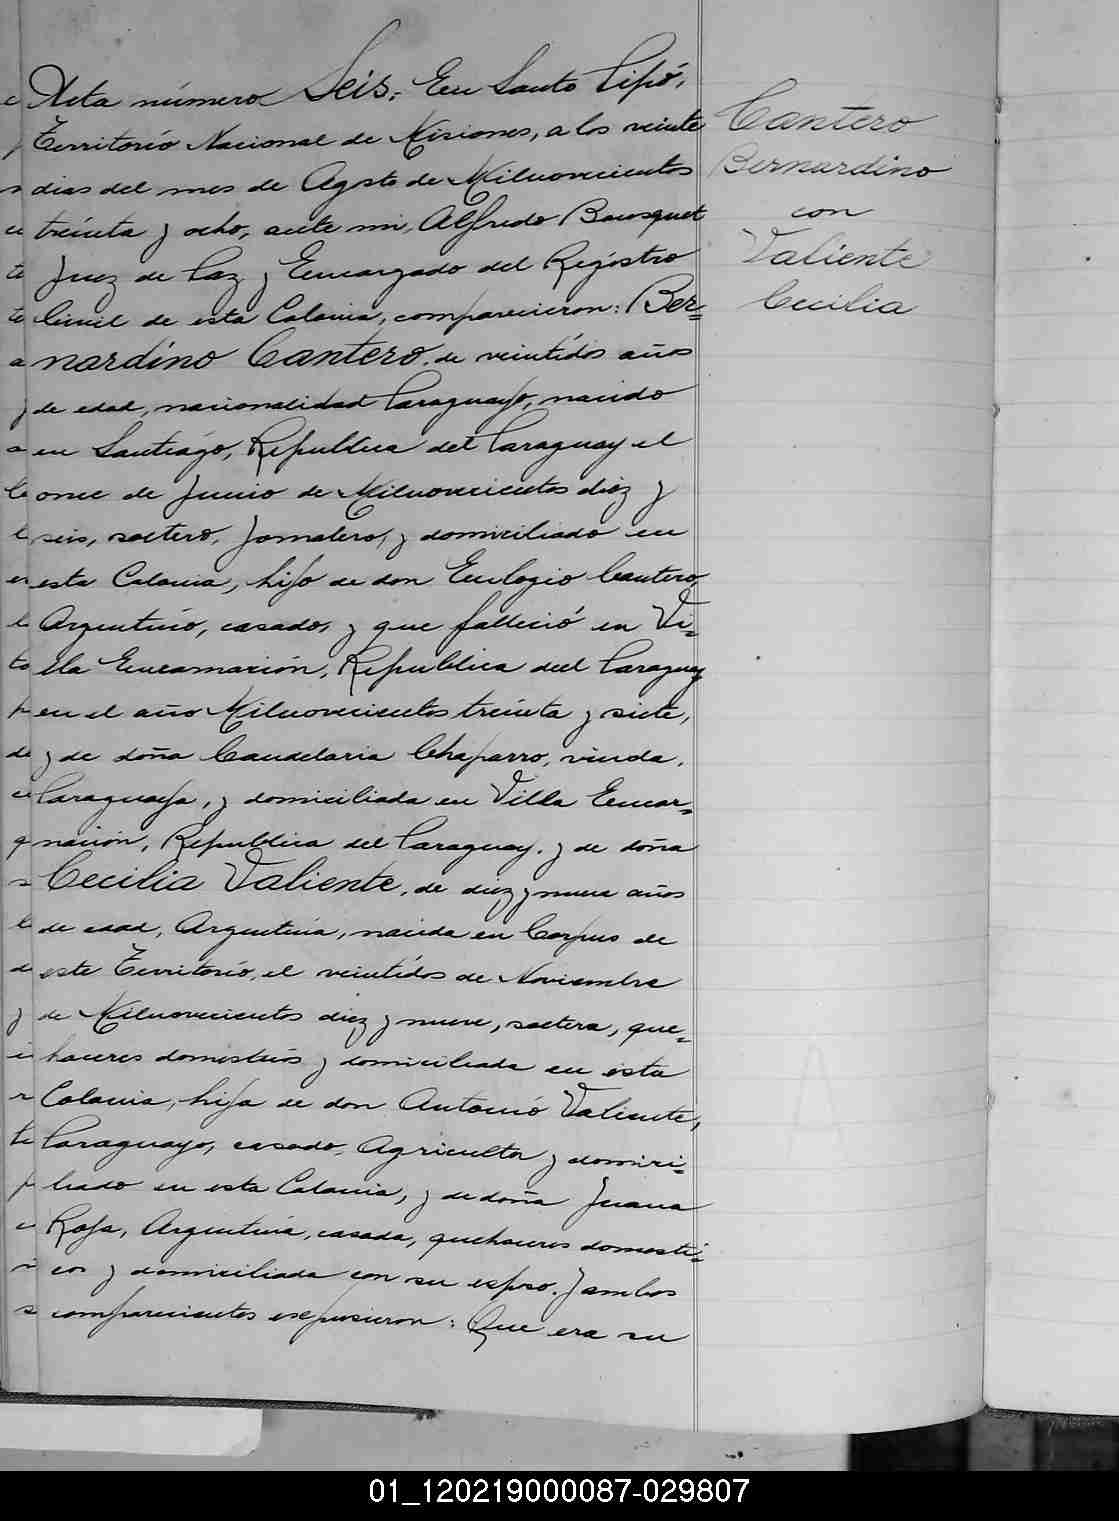 Acta número Seis: En Santo Pipó,
Territorio Nacional de Misiones, a los veinte
dias del mes de Agsto de Milnovecientos
treinta y ocho, ante mi, Alfredo Bousquet
Juez de Paz y Encargado del Registro
Civil de esta Colonia, comparecieron: Ber=
nardino Cantero, de veintidós años
de edad, nacionalidad Paraguayo, nacido
en Santiago, Republica del Paraguay el
once de Junio de Milnovecientos diez y
seis, soltero, Jornalero, y domiciliado en
esta Colonia, hijo de don Eulogio Cantero,
Argentino, casado, y que falleció en Vi=
lla Encarnación, Republica del Paraguay
en el año Milnovecientos treinta y siete,
y de doña Candelaria Chaparro, viuda,
Paraguaya, y domiciliada en Villa Encar=
nación, Republica del Paraguay. y de doña
Cecilia Valiente, de diez y nueve años
de edad, Argentina, nacida en Corpus de
este Territorio, el veintidós de Noviembre
de Milnovecientos diez y nueve, soltera, que=
haceres domesticos y domiciliada en esta
Colonia, hija de don Antonio Valiente,
Paraguayo, casado, Agricultor y domici=
liado en esta Colonia, y de doña Juana
Roja, Argentina, casada, quehaceres domesti=
cos y domiciliada con su espso. Y ambos
comparecientes expusieron: Que era su
Cantero
Bernardino
con
Valiente
Cecilia
01_120219000087-029807